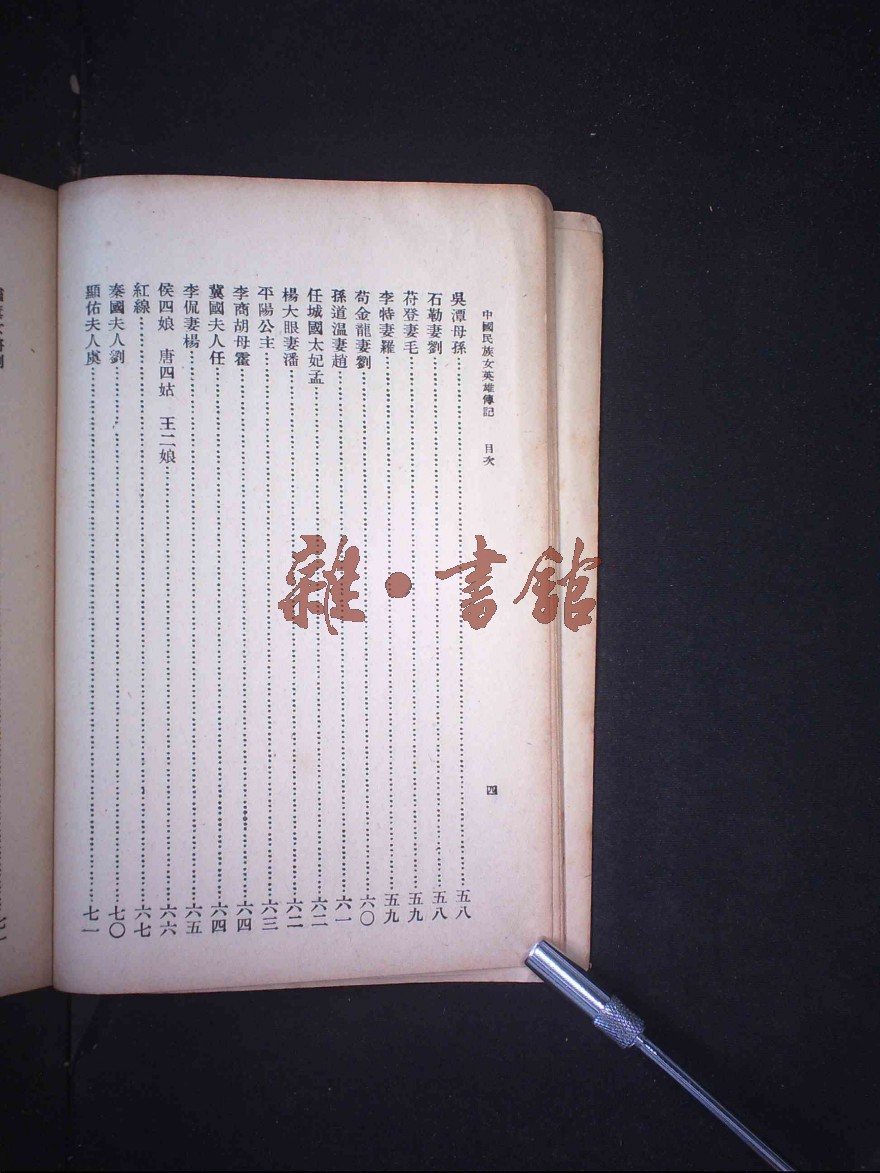 中國民族女英雄傳記　目次
四
吳潭母孫……五八
石勒妻劉……五八
苻登妻毛……五九
李特妻羅……五九
苟金龍妻劉……六〇
孫道溫妻趙……六一
任城國太妃孟……六二
楊大眼妻潘……六二
平陽公主……六三
李商胡母霍……六四
冀國夫人任……六四
李侃妻楊……六五
侯四娘　唐四姑　王二娘……六六
紅線……六七
秦國夫人劉……七〇
顯佑夫人虞……七一
雜・書館